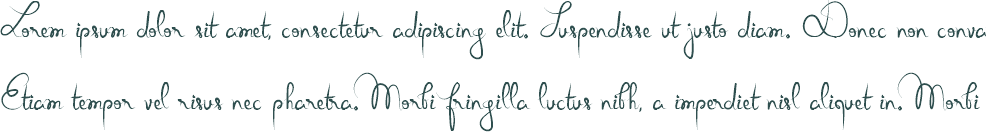 Lorem ipsum dolor sit amet, consectetur adipiscing elit. Suspendisse ut justo diam. Donec non conva
Etiam tempor vel risus nec pharetra. Morbi fringilla luctus nibh, a imperdiet nisl aliquet in. Morbi